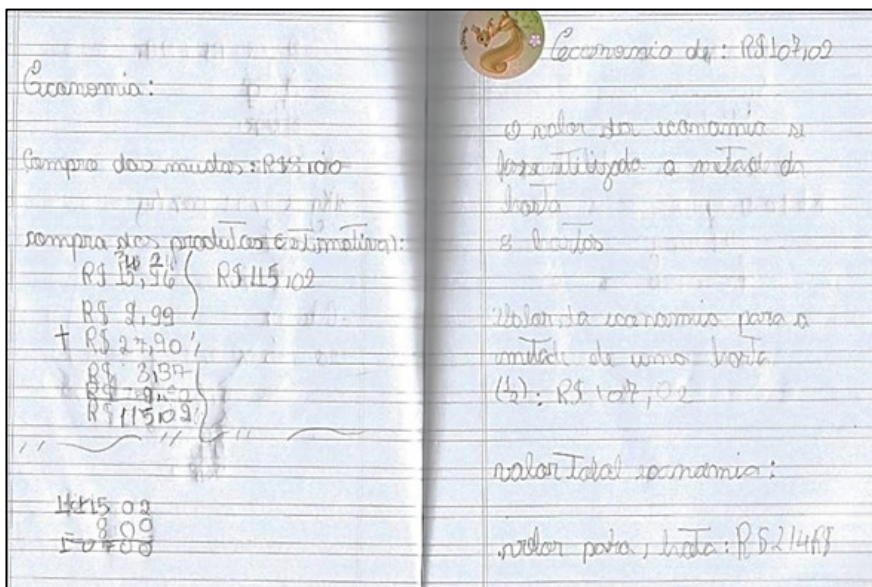 Economia:
Compra das mudas: R$8,00
compra dos produtos (Estimativa):
R$ 115,02
R$ 9,99
+ R$ 27,90
R$ 3,37
R$ 115,02
115 02
8 00
Economia de: R$107,02
O valor da economia se
fosse utilizada a metade da
horta
8 hortas
Valor da economia para a
metade de uma horta
(½): R$ 107,02
valor Total economia:
valor para 1 horta: R$214R$